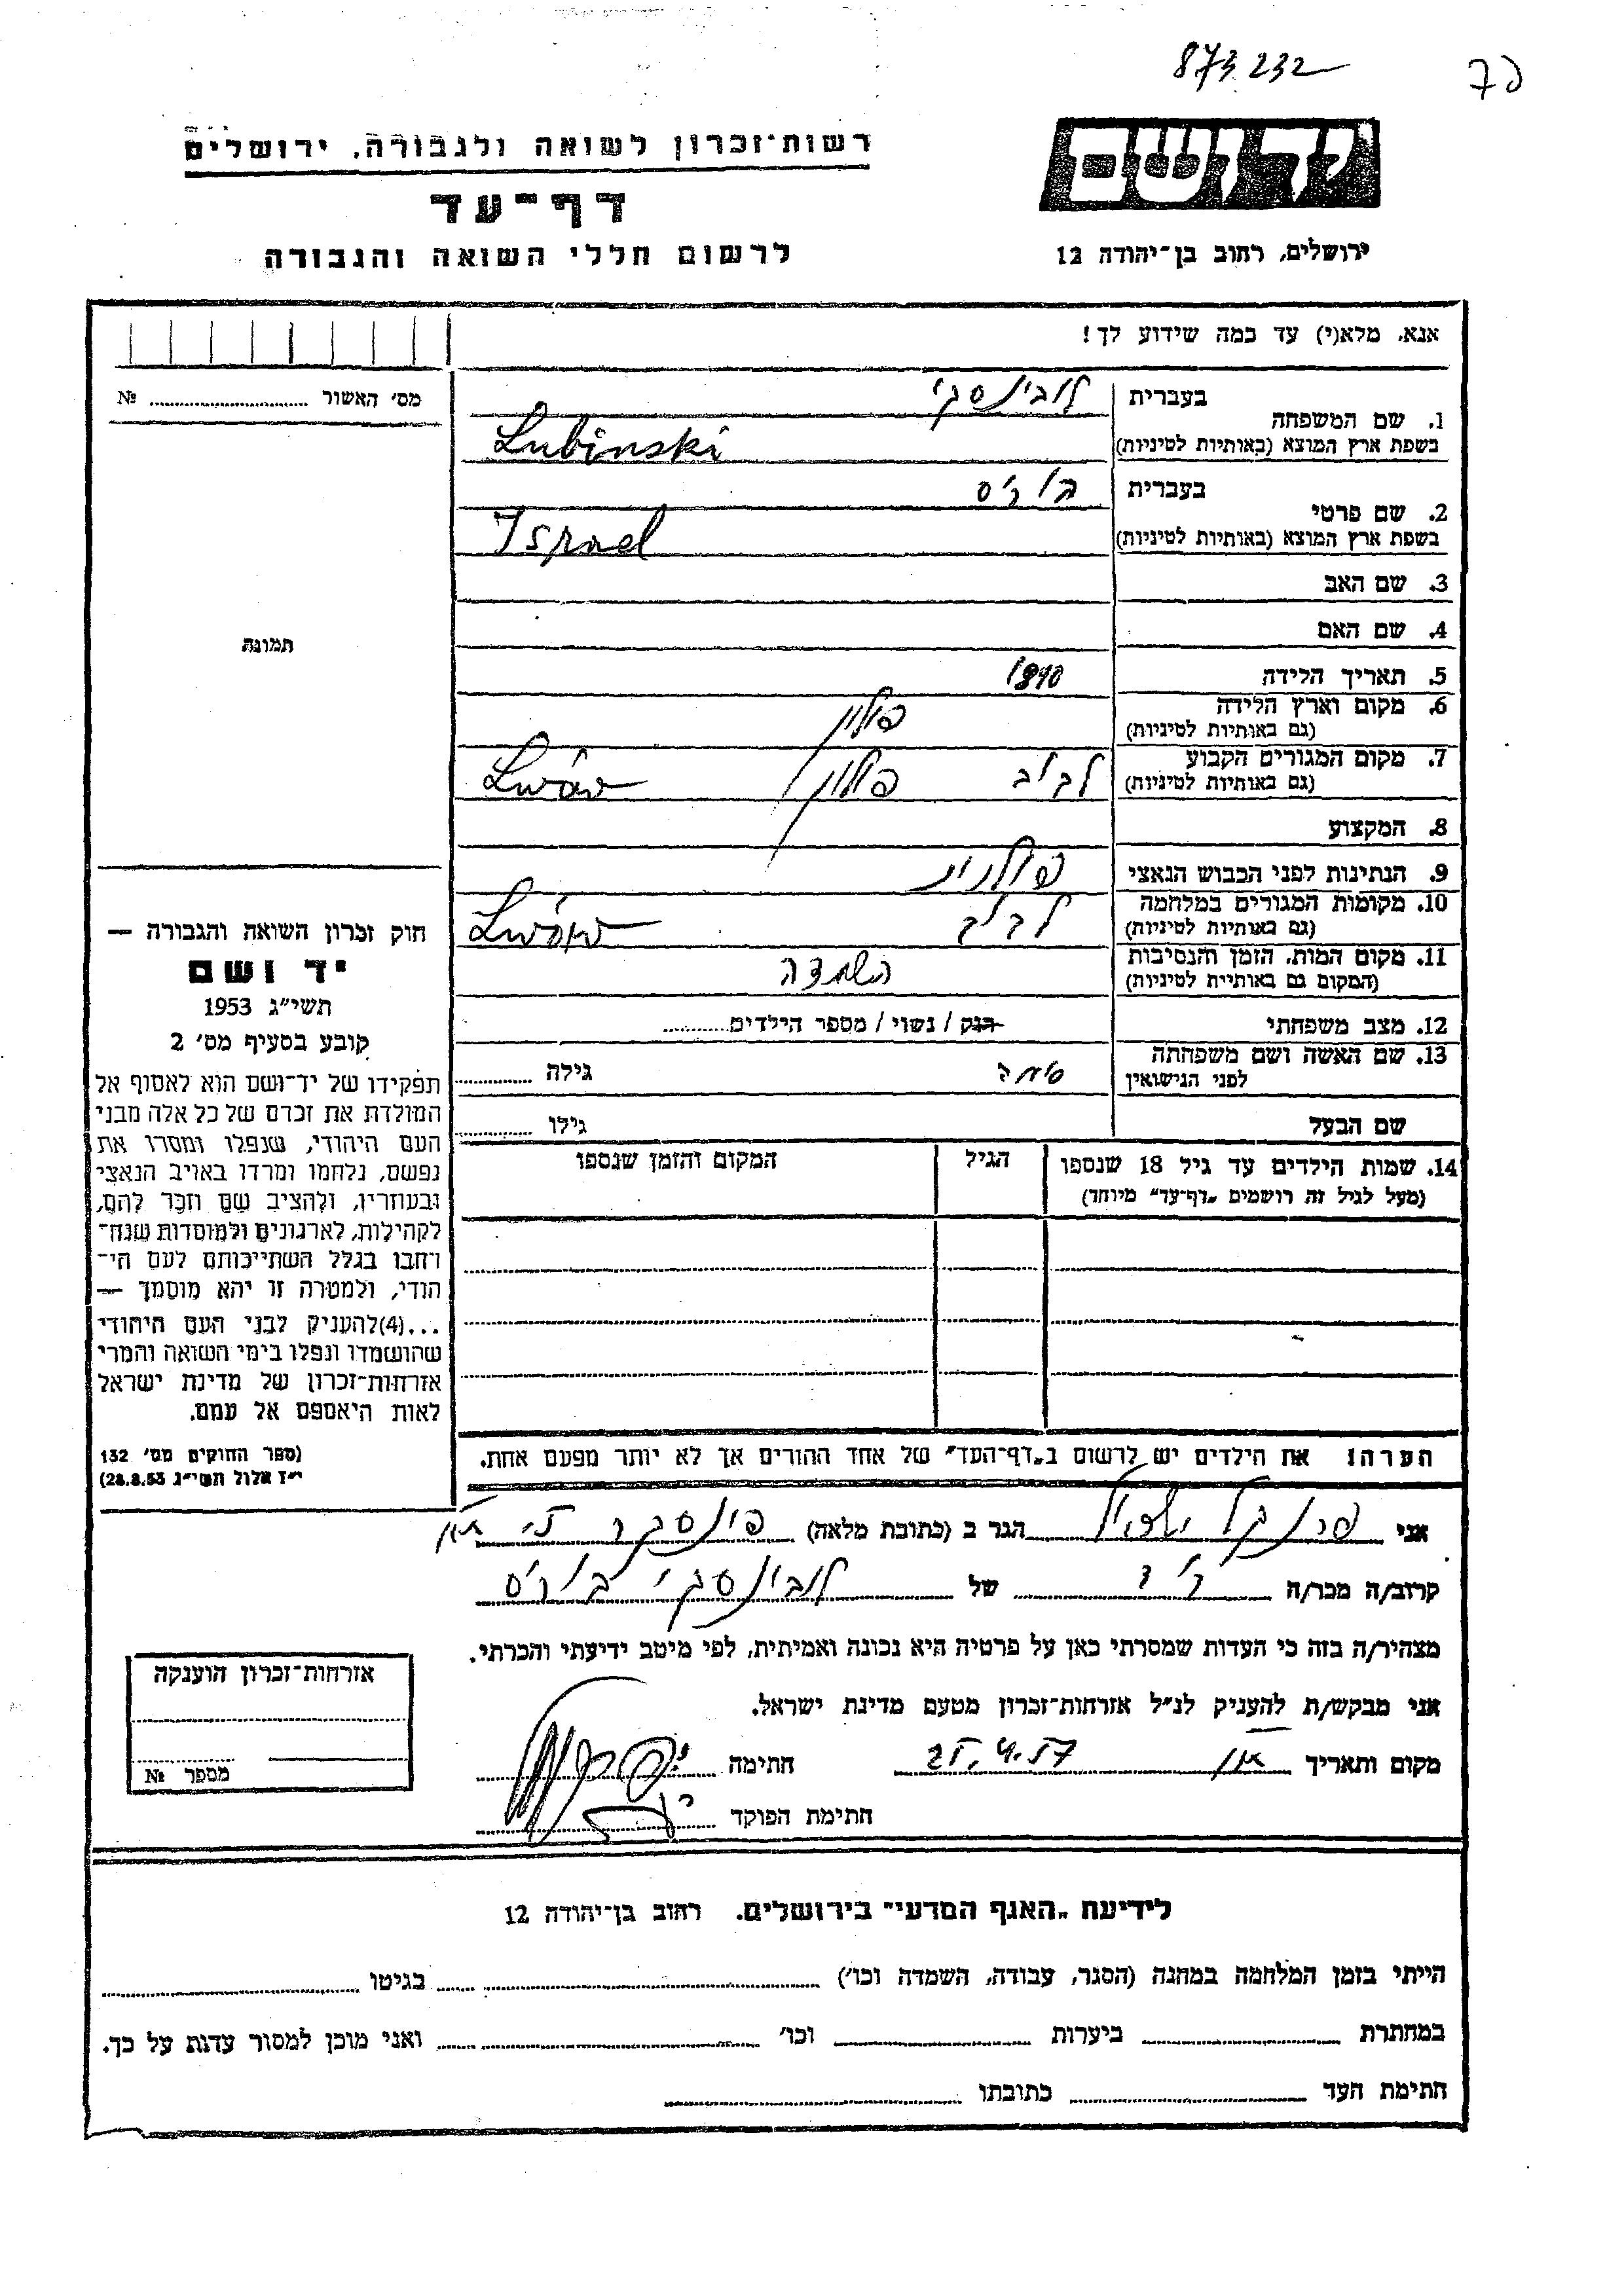 873232
70
יד ושם
ירושלים, רחוב בן־יהודה 12
רשות־זכרון לשואה ולגבורה, ירושלים
דף־עד
לרשום חללי השואה והגבורה
אנא, מלא(י) עד כמה שידוע לך!
מס׳ האשור ........ №
תמונה
1. שם המשפחה
בעברית לובינסקי
בשפת ארץ המוצא (באותיות לטיניות) Lubinski
2. שם פרטי
בעברית בוריס
בשפת ארץ המוצא (באותיות לטיניות) Israel
3. שם האב
4. שם האם
5. תאריך הלידה 1890
6. מקום וארץ הלידה פולין
(גם באותיות לטיניות)
7. מקום המגורים הקבוע לבוב פולין Lwów
(גם באותיות לטיניות)
8. המקצוע
9. הנתינות לפני הכבוש הנאצי פולנית
10. מקומות המגורים במלחמה לבוב Lwów
(גם באותיות לטיניות)
11. מקום המות, הזמן והנסיבות השמדה
(המקום גם באותיית לטיניות)
12. מצב משפחתי רוק / נשוי / מספר הילדים........
13. שם האשה ושם משפחתה
לפני הנישואין גילה ........
שם הבעל גילו ........
14. שמות הילדים עד גיל 18 שנספו
(מעל לגיל זה רושמים „דף־עד״ מיוחד)
הגיל
המקום והזמן שנספו
הערה! את הילדים יש לרשום ב„דף־העד״ של אחד ההורים אך לא יותר מפעם אחת.
חוק זכרון השואה והגבורה —
יד ושם
תשי״ג 1953
קובע בסעיף מס׳ 2
תפקידו של יד־ושם הוא לאסוף אל
המולדת את זכרם של כל אלה מבני
העם היהודי, שנפלו ומסרו את
נפשם, נלחמו ומרדו באויב הנאצי
ובעוזריו, ולהציב שם וזכר להם,
לקהילות, לארגונים ולמוסדות שנח־
רבו בגלל השתייכותם לעם הי־
הודי, ולמטרה זו יהא מוסמך —
...(4)להעניק לבני העם היהודי
שהושמדו ונפלו בימי השואה והמרי
אזרחות־זכרון של מדינת ישראל
לאות היאספם אל עמם.
(ספר החוקים מס׳ 132
י״ז אלול תשי״ג 28.8.53)
אני פרנקל הגר ב (כתובת מלאה) פינסקר
קרוב/ה מכר/ה דוד של לובינסקי בוריס
מצהיר/ה בזה כי העדות שמסרתי כאן על פרטיה היא נכונה ואמיתית, לפי מיטב ידיעתי והכרתי.
אני מבקש/ת להעניק לנ״ל אזרחות־זכרון מטעם מדינת ישראל.
מקום ותאריך 25.4.57 חתימה
חתימת הפוקד
אזרחות־זכרון הוענקה
מספר №
לידיעת „האגף המדעי״ בירושלים. רחוב בן־יהודה 12
הייתי בזמן המלחמה במחנה (הסגר, עבודה, השמדה וכו׳) ........ בגיטו ........
במחתרת ........ ביערות ........ וכו׳ ........ ואני מוכן למסור עדות על כך.
חתימת העד ........ כתובתו ........